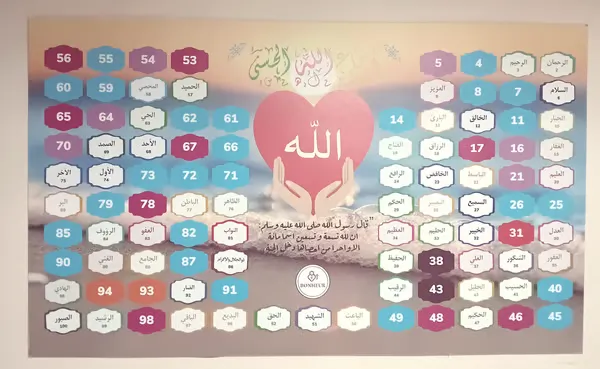 الله الحسنى
الله
الرحمان الرحيم 4 5 53 54 55 56
السلام 6 7 8 العزيز الحميد 57 المحصي 58 59 60
الجبار 11 الخالق 12 الباري 14 61 62 الحي 63 64 65
الغفار 16 17 الرزاق 18 الفتاح 19 66 67 الأحد 68 الصمد 69 70
العليم 21 الباسط الخافض 23 الرافع 24 71 72 73 الأول 74 الأخر 75
25 26 السميع 27 البصير الحكم 29 الظاهر 76 الباطن 77 78 79 البر
العدل 30 31 الخبير 32 الحليم 33 العظيم 34 التواب 81 82 العفو 83 الرؤوف 84 85
الغفور 35 الشكور 36 العلي 37 38 الحفيظ 39 ذوالجلال والاكرام 86 87 الجامع 88 الغني 89 90
40 الحسيب 41 الجليل 42 43 الرقيب 44 91 الضار 92 93 94 الهادي 95
45 46 الحكيم 47 48 49 الباعث 50 الشهيد 51 الحق 52 البديع 96 الباقي 97 98 الرشيد 99 الصبور 100
"قال رسول الله صلى الله عليه وسلم:
ان لله تسعة و تسعين اسما مائة
الا واحدا من احصاها دخل الجنة
BONHEUR